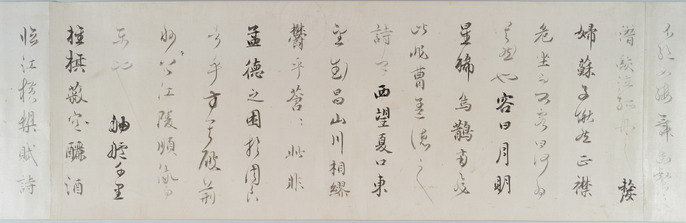 不絕如縷舞幽壑之
潛蛟泣孤舟之嫠
婦蘇子愀然正襟
危坐而問客曰何為
其然也客曰月明
星稀烏鵲南飛
此非曹孟德之
詩乎西望夏口東
望武昌山川相繆
鬱乎蒼〻此非
孟德之困於周郎
者乎方其破荊
州下江陵順流而
東也舳艫千里
旌旗蔽空釃酒
臨江橫槊賦詩